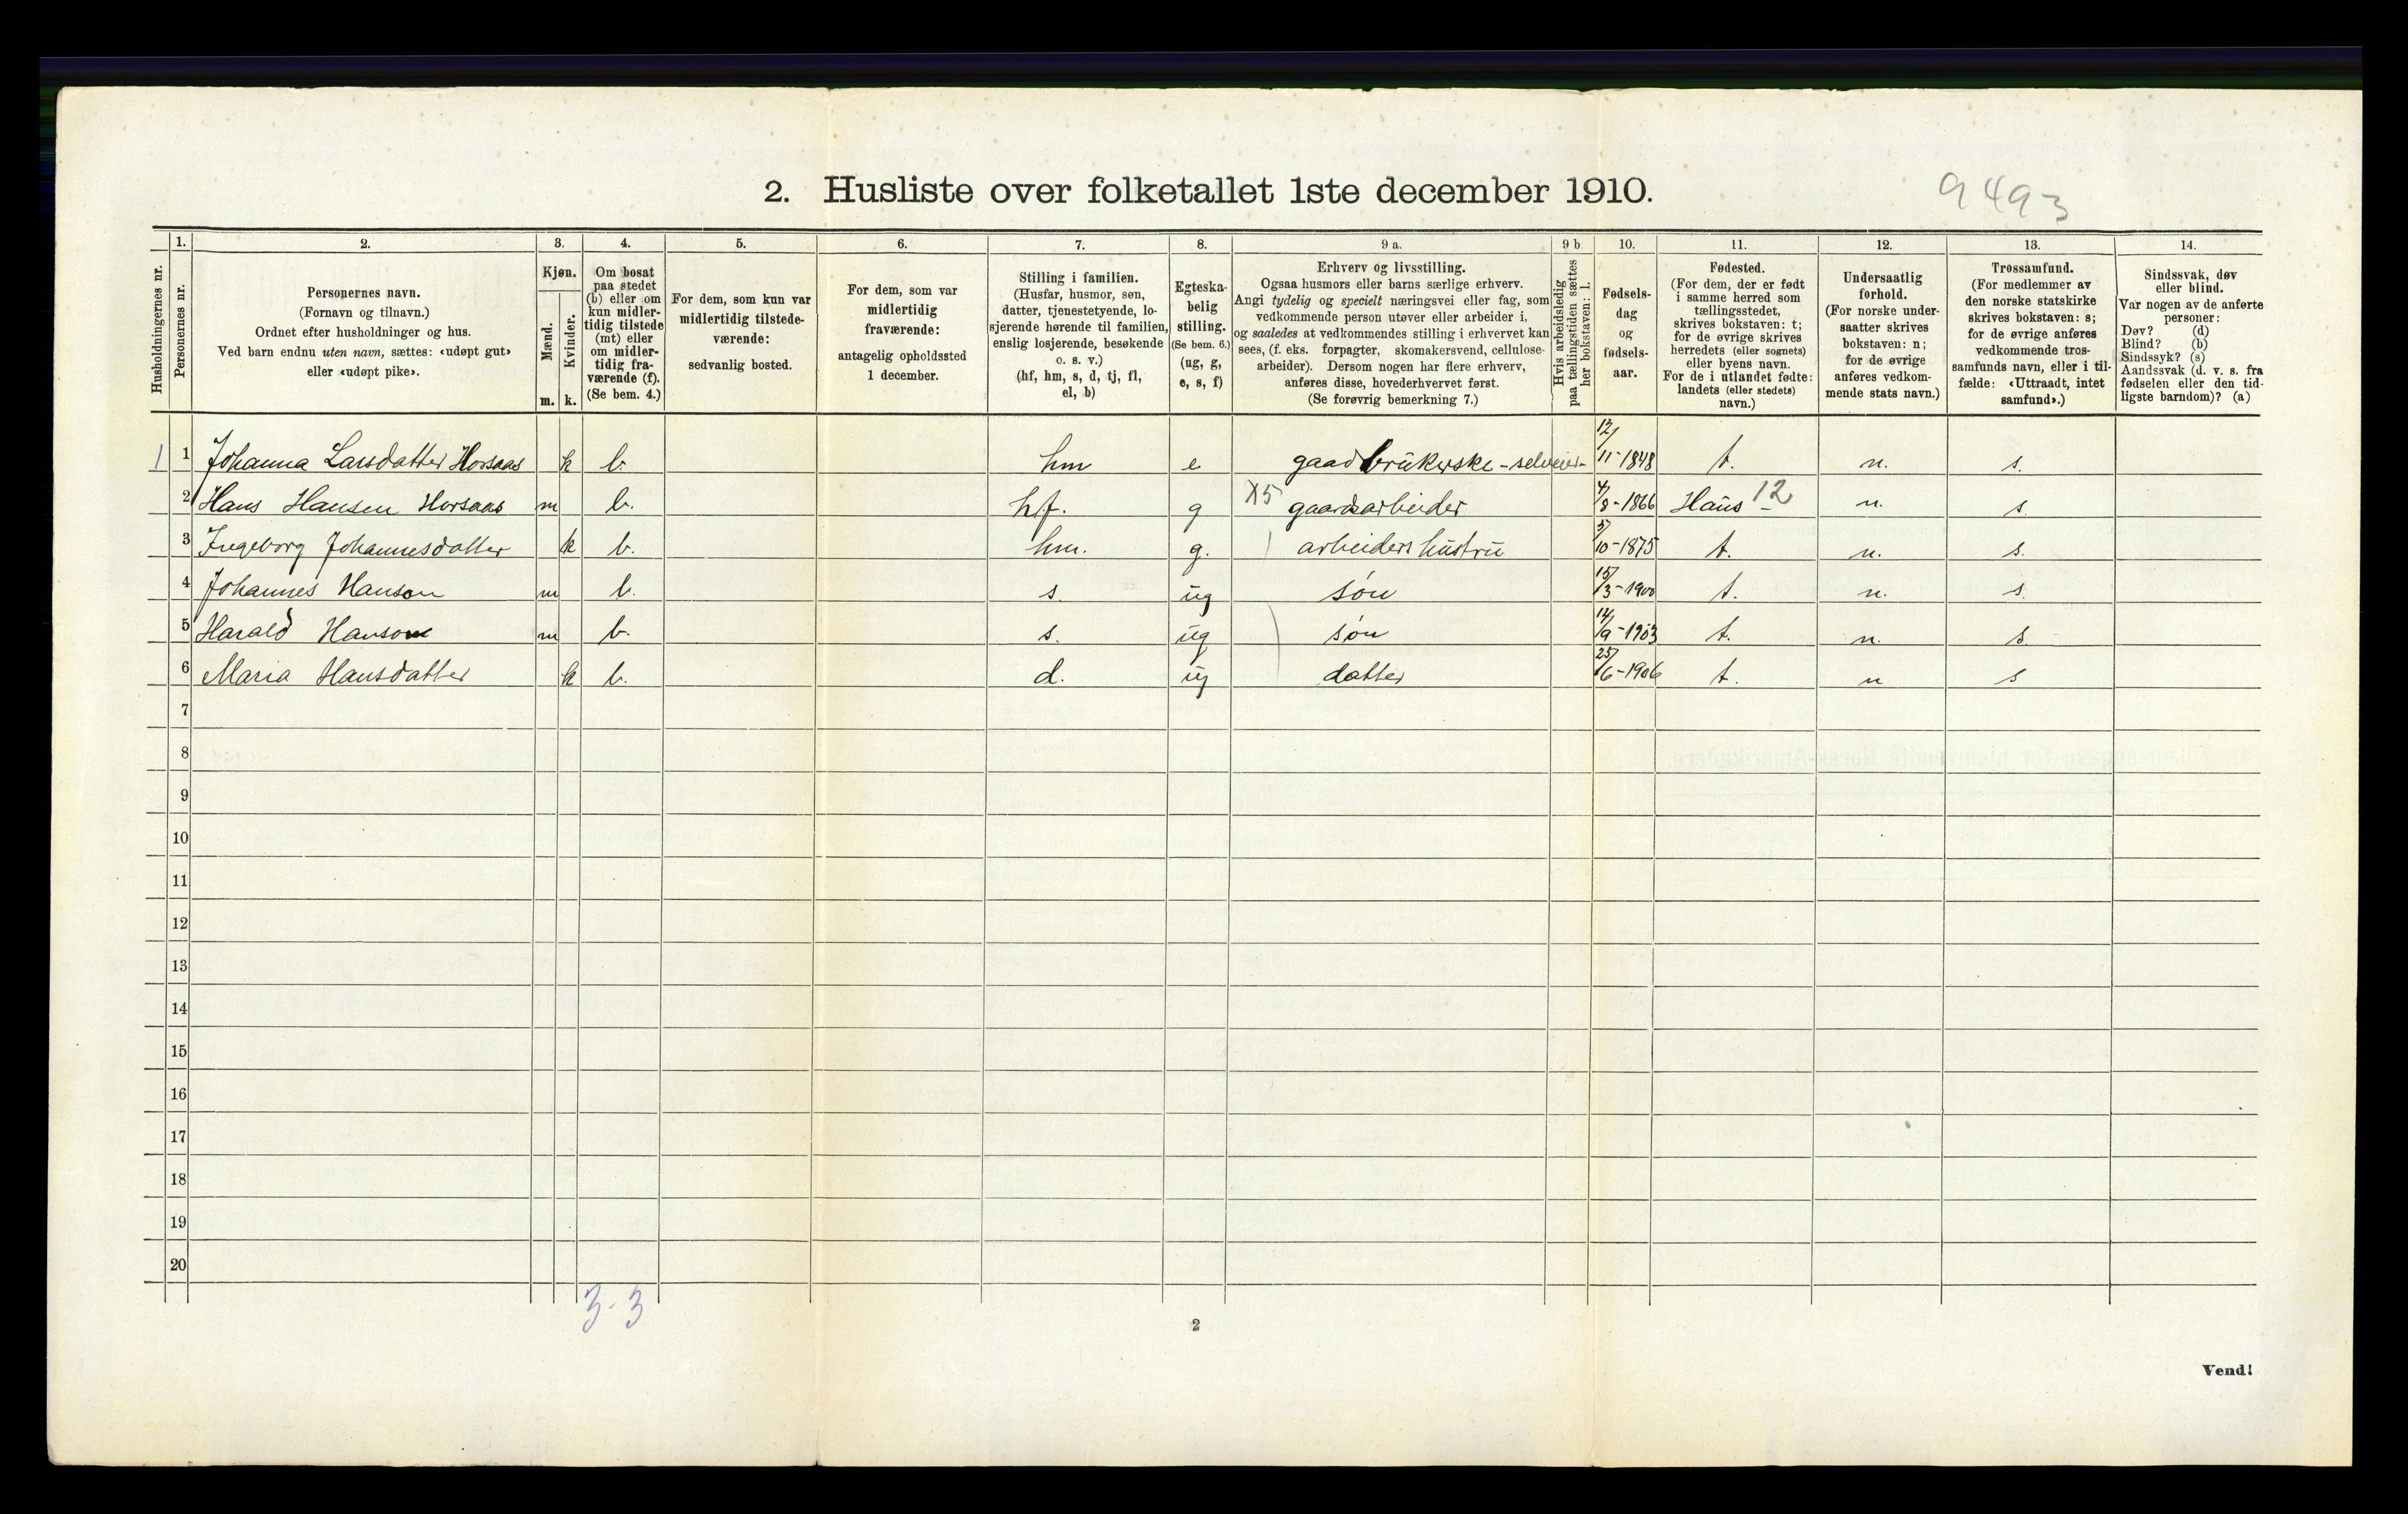 2. Husliste over folketallet 1ste december 1910.
9493
Husholdningernes nr.
1.
Personernes nr.
2.
Personernes navn.
(Fornavn og tilnavn.)
Ordnet efter husholdninger og hus.
Ved barn endnu uten navn, sættes: «udøpt gut»
eller «udøpt pike».
3.
Kjøn.
Mænd.
Kvinder.
m. k.
4.
Om bosat
paa stedet
(b) eller om
kun midler-
tidig tilstede
(mt) eller
om midler-
tidig fra-
værende (f).
(Se bem. 4.)
5.
For dem, som kun var
midlertidig tilstede-
værende:
sedvanlig bosted.
6.
For dem, som var
midlertidig
fraværende:
antagelig opholdssted
1 december.
7.
Stilling i familien.
(Husfar, husmor, søn,
datter, tjenestetyende, lo-
sjerende hørende til familien,
enslig losjerende, besøkende
o. s. v.)
(hf, hm, s, d, tj, fl,
el, b)
8.
Egteska-
belig
stilling.
(Se bem. 6.)
(ug, g,
e, s, f)
9 a.
Erhverv og livsstilling.
Ogsaa husmors eller barns særlige erhverv.
Angi tydelig og specielt næringsvei eller fag, som
vedkommende person utøver eller arbeider i,
og saaledes at vedkommendes stilling i erhvervet kan
sees, (f. eks. forpagter, skomakersvend, cellulose-
arbeider). Dersom nogen har flere erhverv,
anføres disse, hovederhvervet først.
(Se forøvrig bemerkning 7.)
9 b
Hvis arbeidsledig
paa tællingstiden sættes
her bokstaven: l.
10.
Fødsels-
dag
og
fødsels-
aar.
11.
Fødested.
(For dem, der er født
i samme herred som
tællingsstedet,
skrives bokstaven: t;
for de øvrige skrives
herredets (eller sognets)
eller byens navn.
For de i utlandet fødte:
landets (eller stedets)
navn.)
12.
Undersaatlig
forhold.
(For norske under-
saatter skrives
bokstaven: n;
for de øvrige
anføres vedkom-
mende stats navn.)
13.
Trossamfund.
(For medlemmer av
den norske statskirke
skrives bokstaven: s;
for de øvrige anføres
vedkommende tros-
samfunds navn, eller i til-
fælde: «Uttraadt, intet
samfund».)
14.
Sindssvak, døv
eller blind.
Var nogen av de anførte
personer:
Døv? (d)
Blind? (b)
Sindssyk? (s)
Aandssvak (d. v. s. fra
fødselen eller den tid-
ligste barndom)? (a)
1 1 Johanna Larsdatter Horsaas k b. hm e gaardbrukerske-selveier- 12/11-1848 t. n. s.
2 Hans Hansen Horsaas m b. hf. g X5 gaardsarbeider 4/8-1866 Haus 12 n. s
3 Ingeborg Johannesdatter k b. hm. g. arbeiders hustru 5/10-1875 t. n. s.
4 Johannes Hanson m b. s. ug søn 15/3-1900 t. n. s.
5 Harald Hanson m b. s. ug søn 14/9-1903 t. n. s.
6 Maria Hansdatter k b. d. ug datter 25/6-1906 t. n s
7
8
9
10
11
12
13
14
15
16
17
18
19
20
3-3
2
Vend!